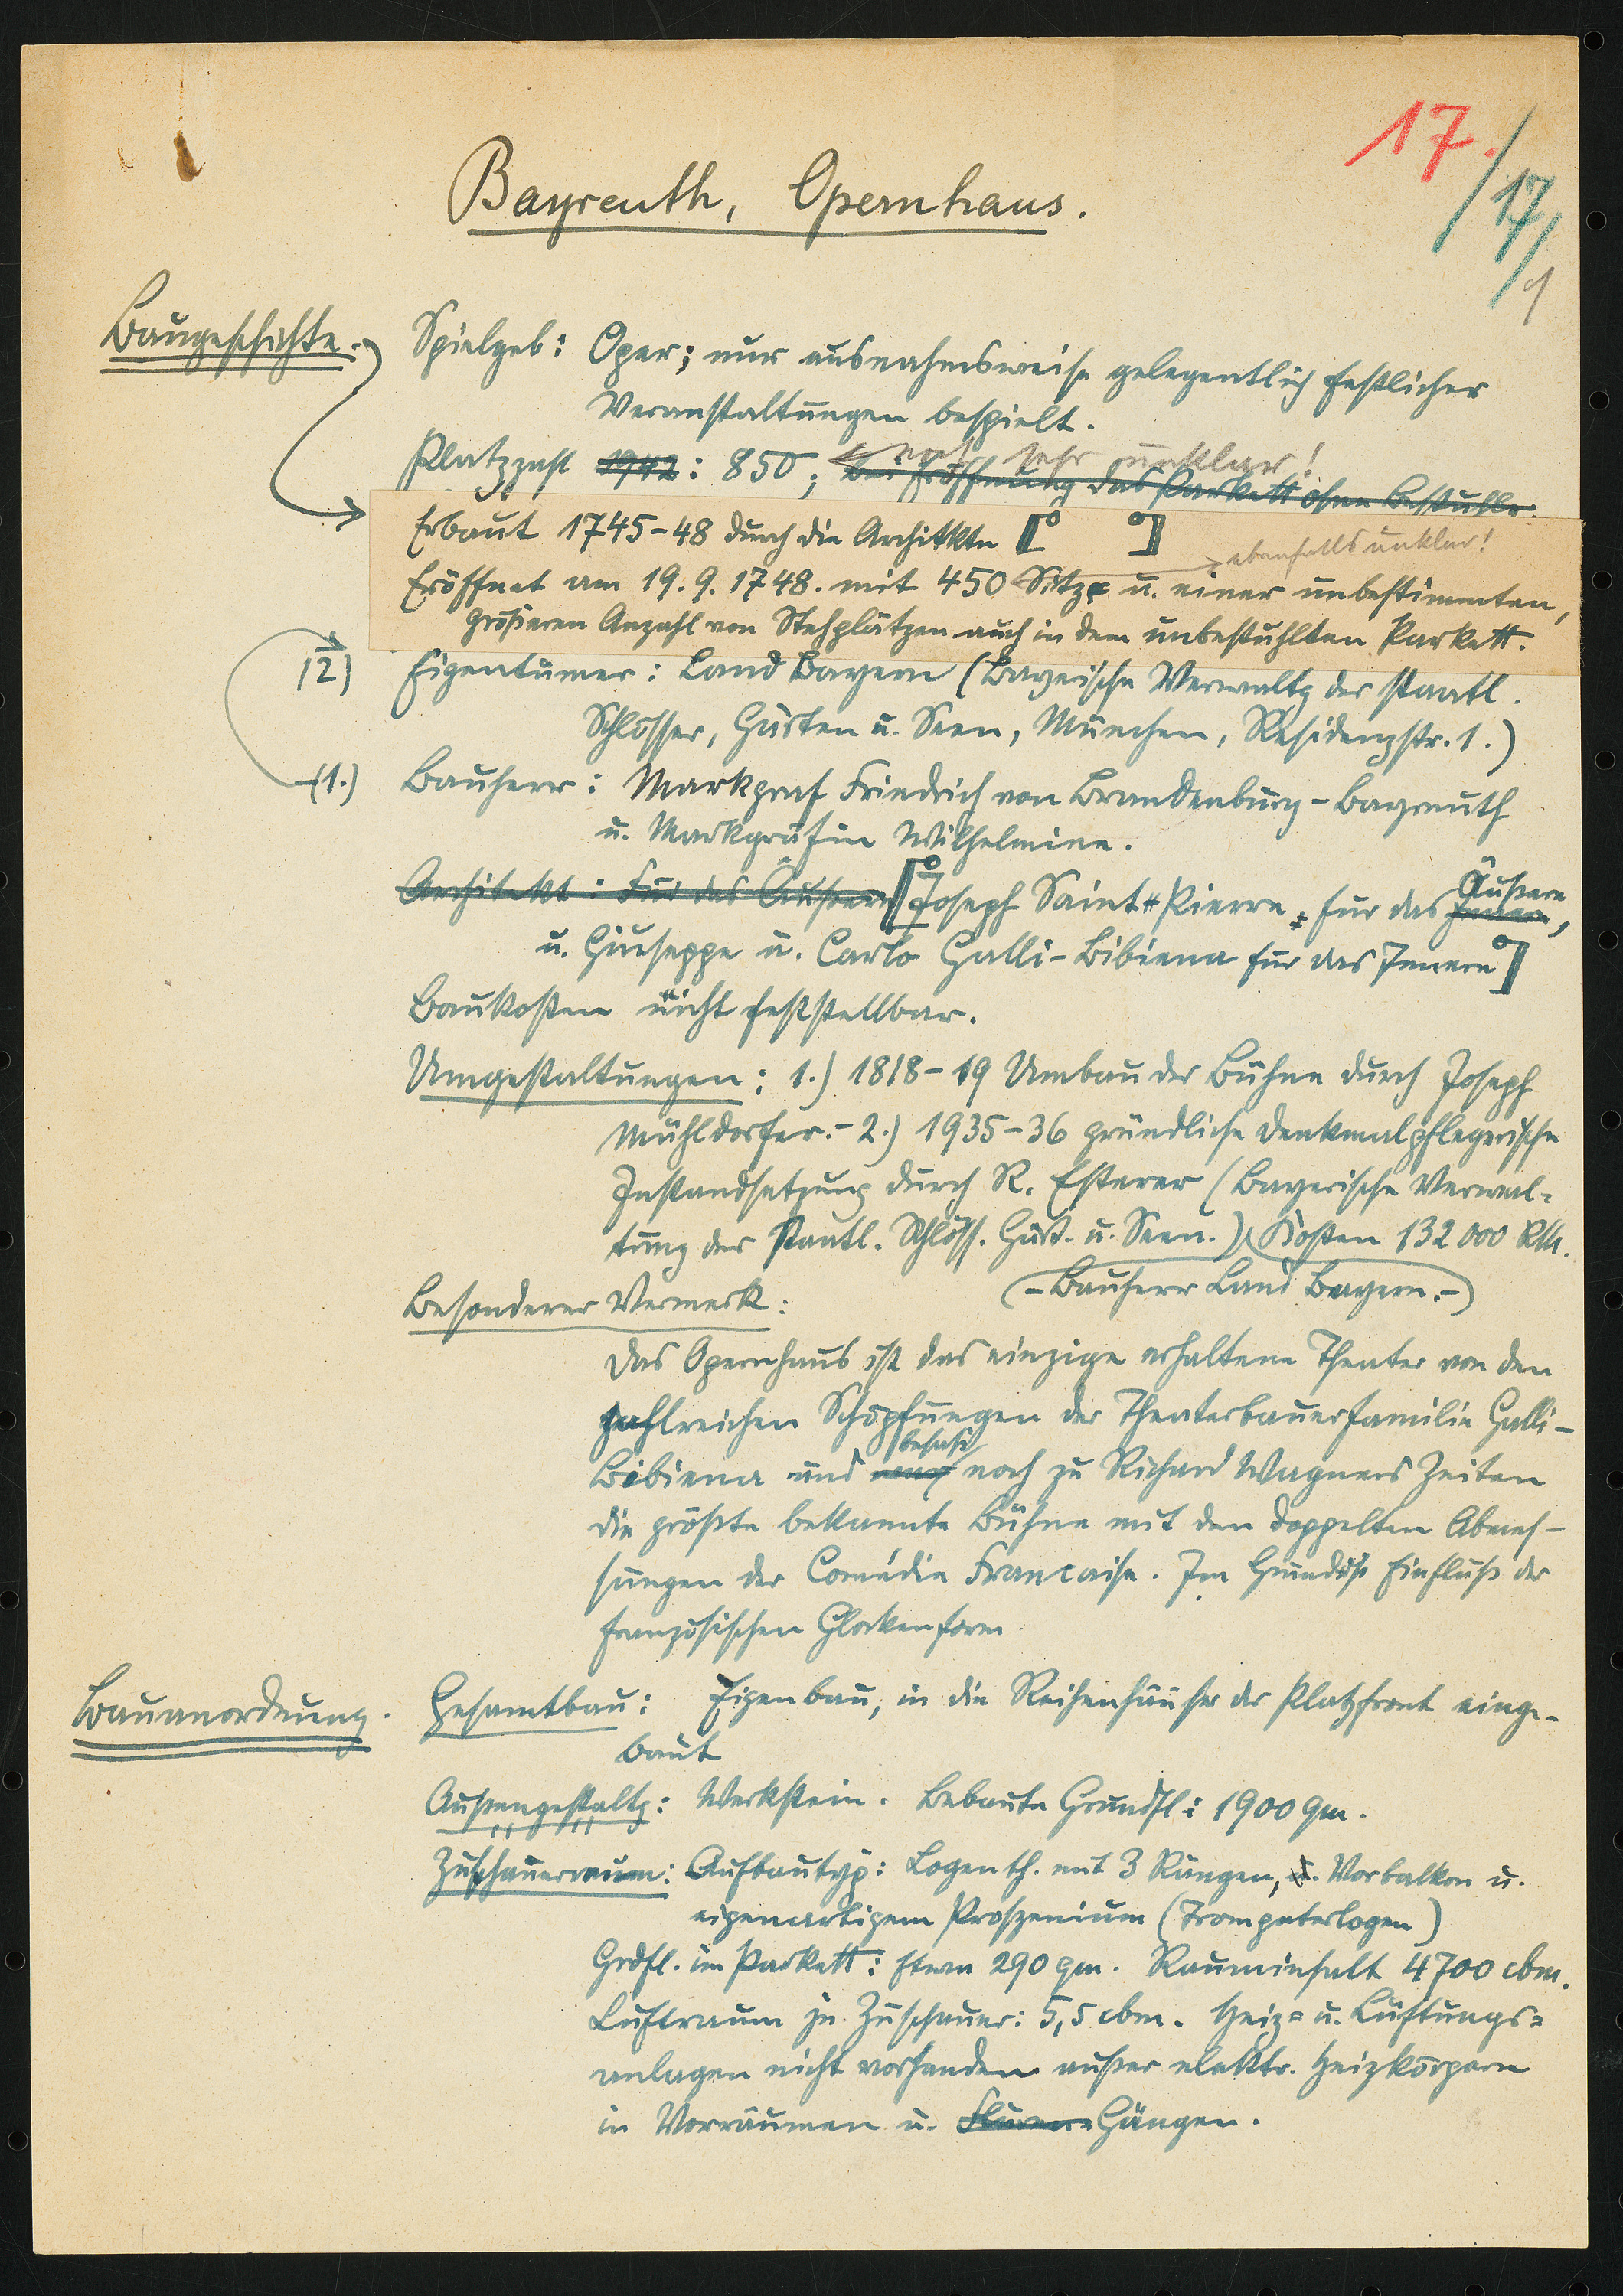 17.
/17/1
Bayreuth, Opernhaus.
Baugeschichte.
Spielgeb: Oper; nur ausnahmsweise gelegentlich festlicher
Veranstaltungen bespielt.
noch sehr unklar!
Platzzahl 1942: 850; bei Eröffnung das Parkett ohne Bestuhlg.
Erbaut 1745-48 durch die Architktn [° °]
ebenfalls unklar!
Eröffnet am 19.9.1748. mit 450 Sitze u. einer unbestimmten,
größeren Anzahl von Stehplätzen auch in dem unbestuhlten Parkett.
(2) Eigentümer: Land Bayern (Bayerische Verwaltg der staatl.
Schlösser, Gärten u. Seen, München, Residenzstr. 1.)
(1.) Bauherr: Markgraf Friedrich von Brandenburg-Bayreuth
u. Markgräfin Wilhelmine.
Architekt: Für das Äußere [° Joseph Saint-Pierre, für das Innere Äußere,
u. Giuseppe u. Carlo Galli-Bibiena für das Innere °]
Baukosten nicht feststellbar.
Umgestaltungen: 1.) 1818-19 Umbau der Bühne durch Joseph
Mühldorfer.- 2.) 1935-36 gründliche denkmalpflegerische
Instandsetzung durch R. Esterer (Bayerische Verwal-
tung der staatl. Schlöss. Gärt. u. Seen.) Kosten 132 000 RM.
(- Bauherr Land Bayern.-)
Besonderer Vermerk:
Das Opernhaus ist das einzige erhaltene Theater von den
zahlreichen Schöpfungen der Theaterbauerfamilie Galli-
Bibiena und besaß noch zu Richard Wagners Zeiten
die größte bekannte Bühne mit den doppelten Abmes-
sungen der Comédie Francaise. Im Grundriß Einfluß der
französischen Glockenform.
Bauanordnung.
Gesamtbau: Eigenbau, in die Reihenhäuser der Platzfront einge-
baut
Außengestaltg: Werkstein. Bebaute Grundfl: 1900 qm.
Zuschauerraum: Aufbautyp: Logenth. mit 3 Rängen, Vorbalkon u.
eigenartigem Proszenium (Trompeterlogen)
Grdfl. im Parkett: Etwa 290 qm. Rauminhalt 4700 cbm.
Luftraum je Zuschauer: 5,5 cbm. Heiz= u. Lüftungs=
anlagen nicht vorhanden außer elektr. Heizkörpern
in Vorräumen u. Fluren Gängen.